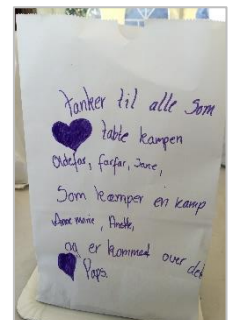 Tanker til alle som
tabte kampen
Oldefar, farfar, Jane,
Som kæmper en kamp
Anne marie, Anette,
og er kommet over det
Paps.